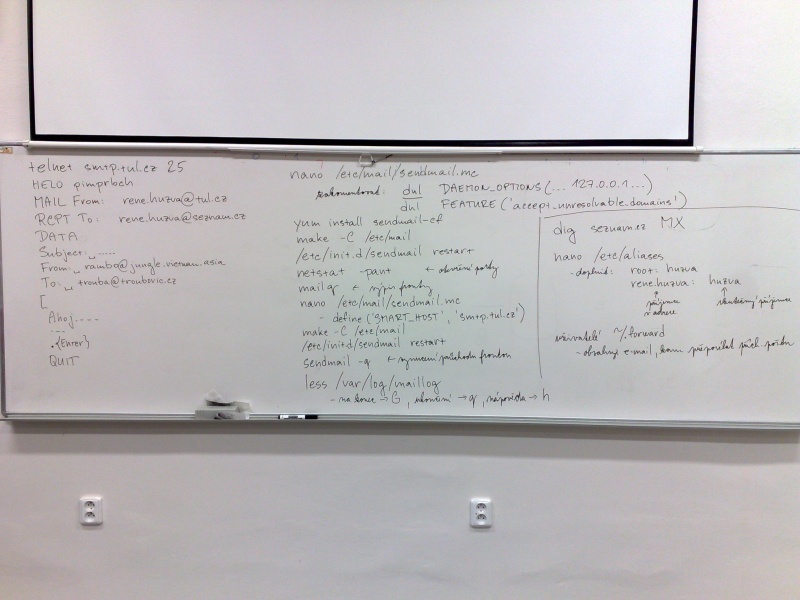 telnet smtp.tul.cz 25
HELO pimprbch
MAIL From: rene.huzva@tul.cz
RCPT To: rene.huzva@seznam.cz
DATA
Subject:␣.....
From:␣rambo@jungle.vietnam.asia
To:␣trouba@troubovic.cz
[
Ahoj....
...
.{Enter}
QUIT
nano /etc/mail/sendmail.mc
zakomentovat: dnl DAEMON_OPTIONS(... 127.0.0.1 ...)
dnl FEATURE('accept_unresolvable_domains')
yum install sendmail-cf
make -C /etc/mail
/etc/init.d/sendmail restart
netstat -pant ← otevřené porty
mailq ← výpis fronty
nano /etc/mail/sendmail.mc
- define('SMART_HOST', 'smtp.tul.cz')
make -C /etc/mail
/etc/init.d/sendmail restart
sendmail -q ← vynucení průchodu frontou
less /var/log/maillog
- na konec → G, ukončení → q, nápověda → h
dig seznam.cz MX
nano /etc/aliases
- doplnit: root: huzva
rene.huzva: huzva
↑ ↑
příjemce skutečný příjemce
v adrese
uživatelé ~/.forward
- obsahuje e-mail, kam přeposílat přích. poštu